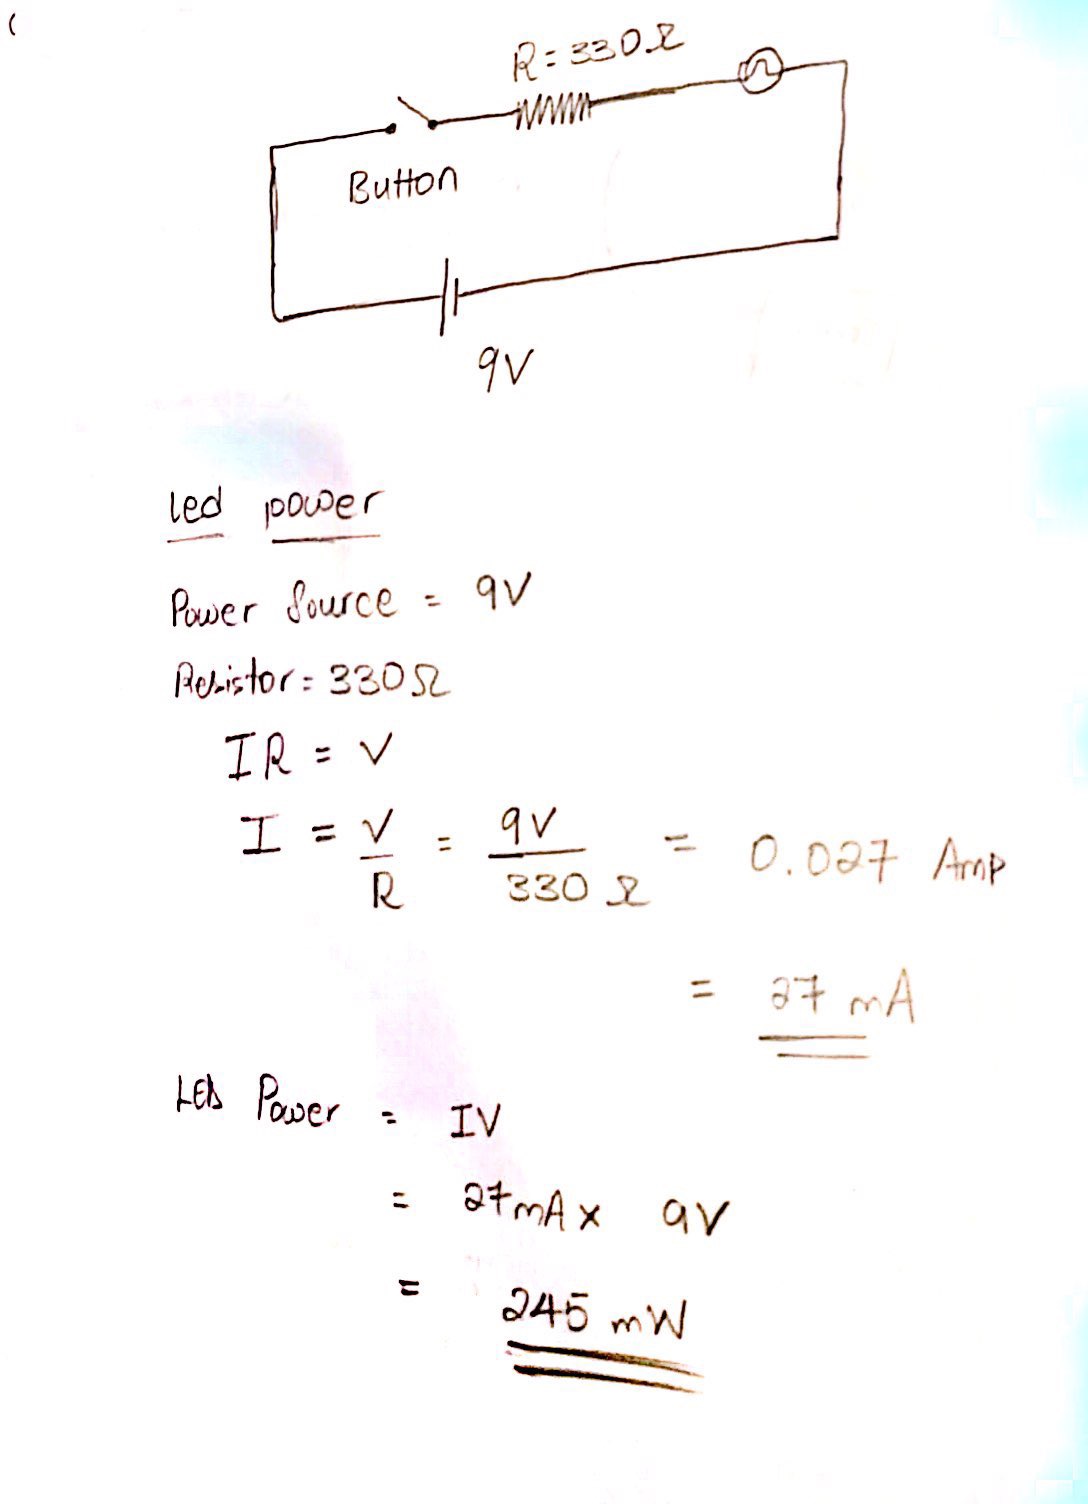 (
R = 330Ω
Button
9V
led power
Power Source = 9V
Resistor = 330Ω
IR = V
I = V/R = 9V/330Ω = 0.027 Amp
= 27 mA
LED Power = IV
= 27mA x 9V
= 245 mW